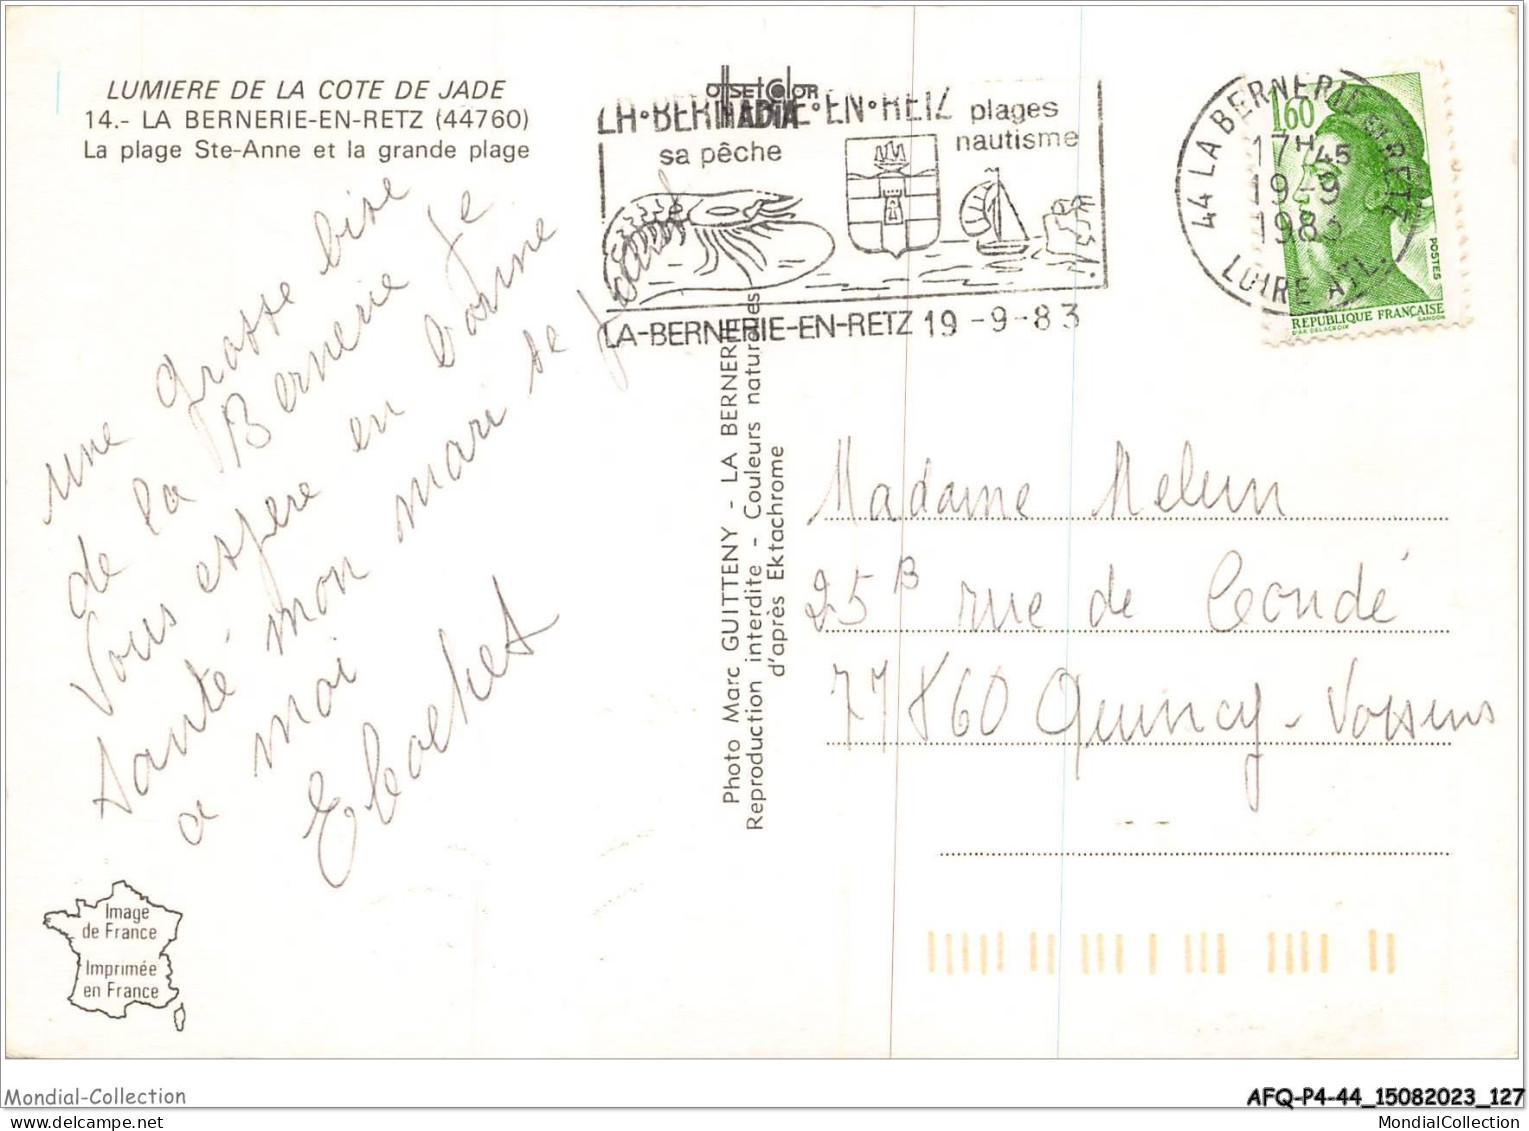 LUMIERE DE LA COTE DE JADE
14.- LA BERNERIE-EN-RETZ (44760)
La plage Ste-Anne et la grande plage
une grosse bise
de la Bernerie je
vous espere en bonne
santé mon mari se joint
a moi
OffSEt COlOR
LA•BERNERIE•EN•RETZ
sa pêche
plages
nautisme
LA-BERNERIE-EN-RETZ 19-9-83
44 LA BERNERIE EN RETZ
17H45
19-9
1983
LOIRE ATL.
1,60
POSTES
REPUBLIQUE FRANÇAISE
D'AP. DELACROIX GANDON
Photo Marc GUITTENY - LA BERNERIE
Reproduction interdite - Couleurs naturelles
d'après Ektachrome
Madame Melun
25B rue de Condé
77860 Quincy-Voisins
Image
de France
Imprimée
en France
Mondial-Collection
AFQ-P4-44_15082023_127
www.mondial-collection.com
MondialCollection